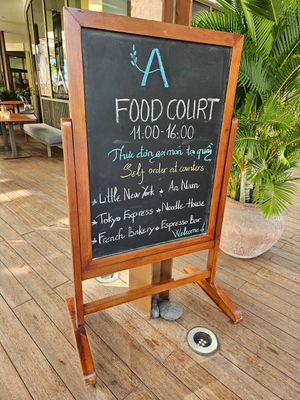 A
FOOD COURT
11:00-16:00
Thực đơn gọi món tại quầy
Self order at counters
* Little New York * An Nam
* Tokyo Express * Noodle House
* French Bakery * Espresso Bar
Welcome